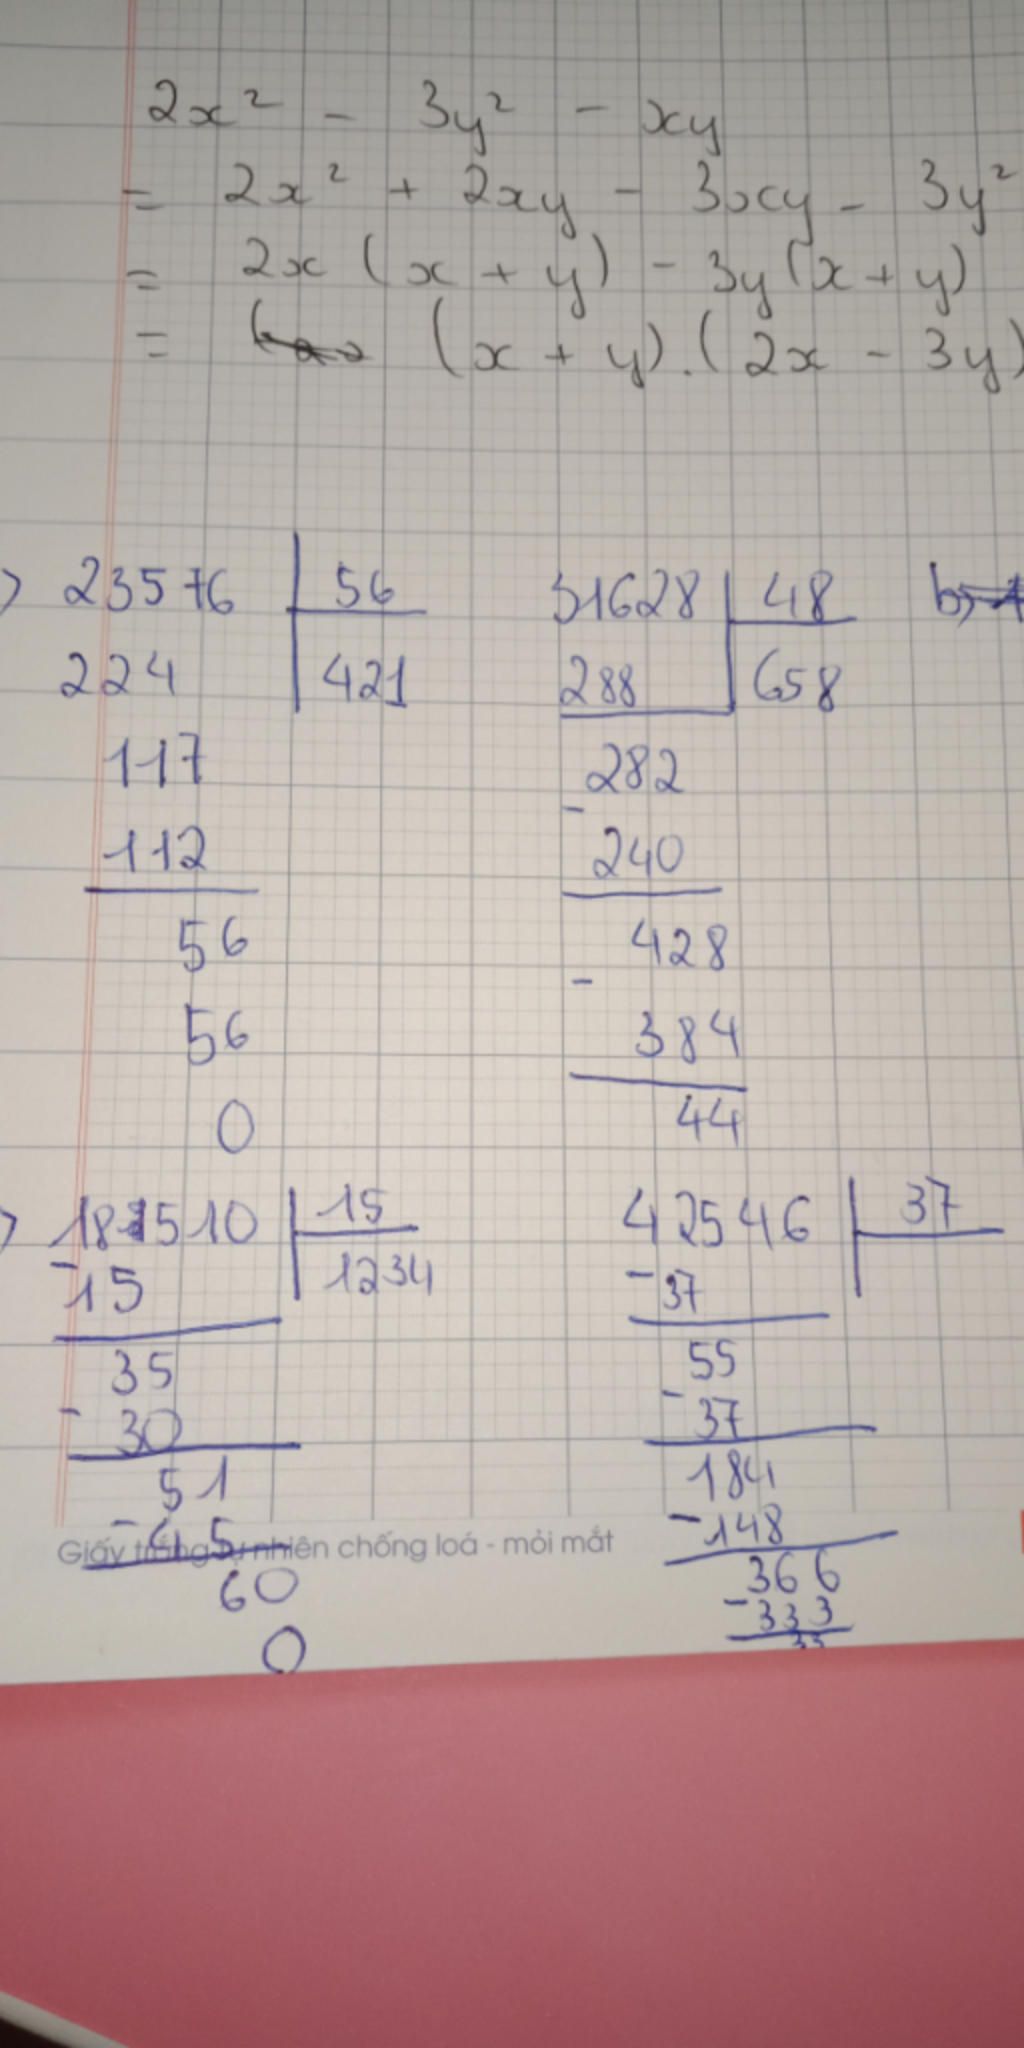 2x² - 3y² - xy
= 2x² + 2xy - 3xy - 3y²
= 2x (x + y) - 3y (x + y)
= (x + y) . (2x - 3y)
) 23576 | 56
224 | 421
117
112
56
56
0
31628 | 48
288 | 658
- 282
240
428
- 384
44
b)
) 18510 | 15
- 15 | 1234
35
- 30
51
- 45
60
0
42546 | 37
- 37
55
- 37
184
- 148
366
- 333
33
Giấy trắng tự nhiên chống loá - mỏi mắt